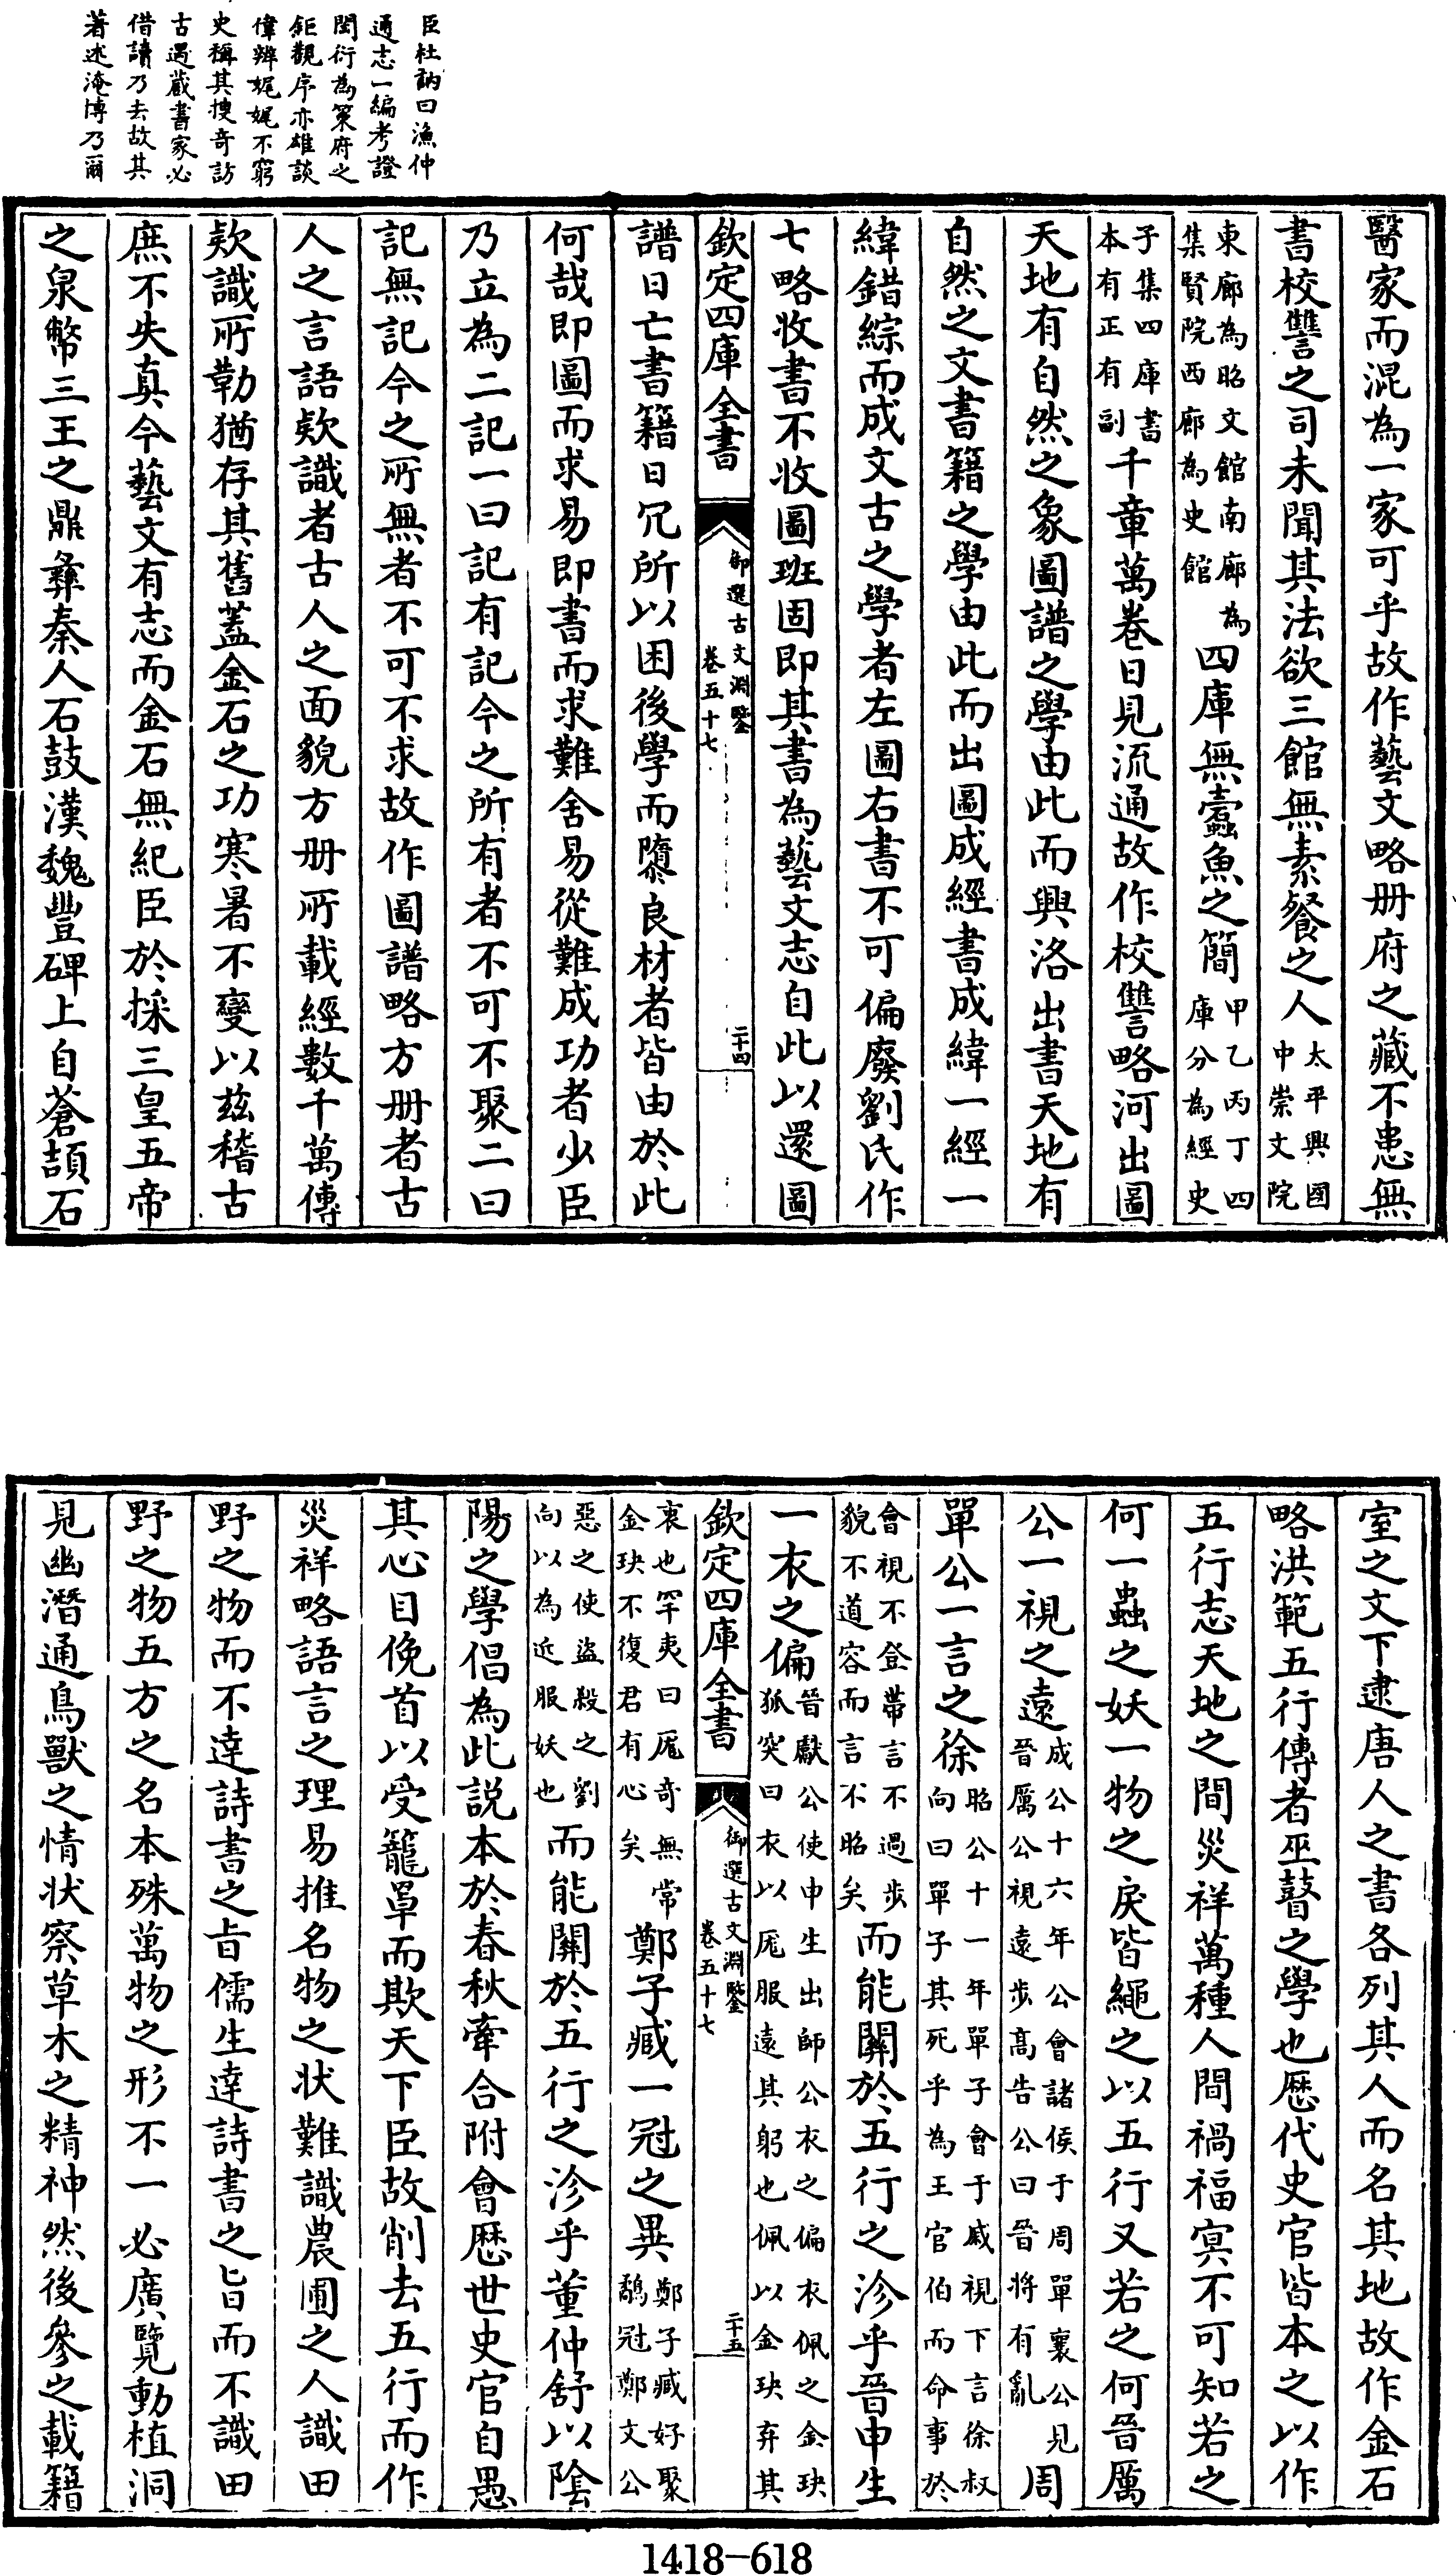 臣杜訥曰漁仲
通志一編考證
閎衍為策府之
鉅觀序亦雄談
偉辨娓娓不窮
史稱其搜奇訪
古遇藏書家必
借讀乃去故其
著述淹博乃爾
醫家而混為一家可乎故作藝文略册府之藏不患無
書校讐之司未聞其法欲三館無素餐之人太平興國中崇文院
東廊為昭文館南廊為集賢院西廊為史館四庫無蠧魚之簡甲乙丙丁四庫分為經史
子集四庫書本有正有副千章萬卷日見流通故作校讐略河出圖
天地有自然之象圖譜之學由此而興洛出書天地有
自然之文書籍之學由此而出圖成經書成緯一經一
緯錯綜而成文古之學者左圖右書不可偏廢劉氏作
七略收書不收圖班固即其書為藝文志自此以還圖
欽定四庫全書 御選古文淵鑒 卷五十七 二十四
譜日亡書籍日冗所以困後學而隳良材者皆由於此
何哉即圖而求易即書而求難舍易從難成功者少臣
乃立為二記一曰記有記今之所有者不可不聚二曰
記無記今之所無者不可不求故作圖譜略方册者古
人之言語欵識者古人之面貌方册所載經數千萬傳
欵識所勒猶存其舊蓋金石之功寒暑不變以兹稽古
庶不失真今藝文有志而金石無紀臣於採三皇五帝
之泉幣三王之鼎彝秦人石鼓漢魏豐碑上自蒼頡石
室之文下逮唐人之書各列其人而名其地故作金石
略洪範五行傳者巫瞽之學也歷代史官皆本之以作
五行志天地之間災祥萬種人間禍福冥不可知若之
何一蟲之妖一物之戾皆繩之以五行又若之何晉厲
公一視之遠成公十六年公會諸侯于周單襄公見晉厲公視遠步高告公曰晉將有亂周
單公一言之徐昭公十一年單子會于戚視下言徐叔向曰單子其死乎為王官伯而命事於
會視不登帶言不過步貌不道容而言不昭矣而能關於五行之沴乎晉申生
一衣之偏晉獻公使申生出師公衣之偏衣佩之金玦狐突曰衣以厖服遠其躬也佩以金玦弃其
欽定四庫全書 御選古文淵鑒 卷五十七 二十五
衷也罕夷曰厖奇無常金玦不復君有心矣鄭子臧一冠之異鄭子臧好聚鷸冠鄭文公
惡之使盜殺之劉向以為近服妖也而能關於五行之沴乎董仲舒以陰
陽之學倡為此説本於春秋牽合附會歷世史官自愚
其心目俛首以受籠罩而欺天下臣故削去五行而作
災祥略語言之理易推名物之状難識農圃之人識田
野之物而不達詩書之旨儒生達詩書之旨而不識田
野之物五方之名本殊萬物之形不一必廣覽動植洞
見幽潛通鳥獸之情状察草木之精神然後參之載籍
1418-618